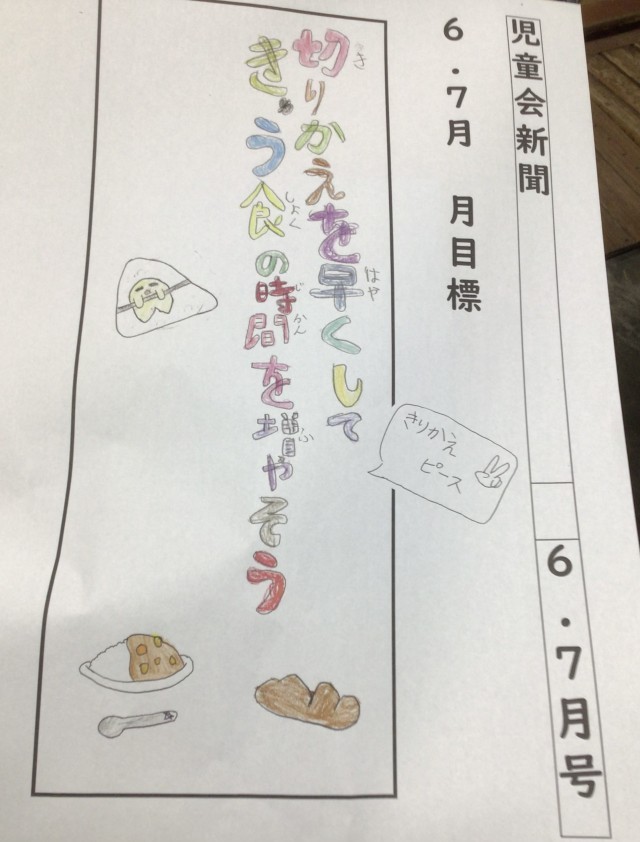 児童会新聞
6・7月号
6・7月 月目標
切りかえを早くして
き
はや
きゅう食の時間を増やそう
しょく
じかん
ふ
きりかえ
ピース